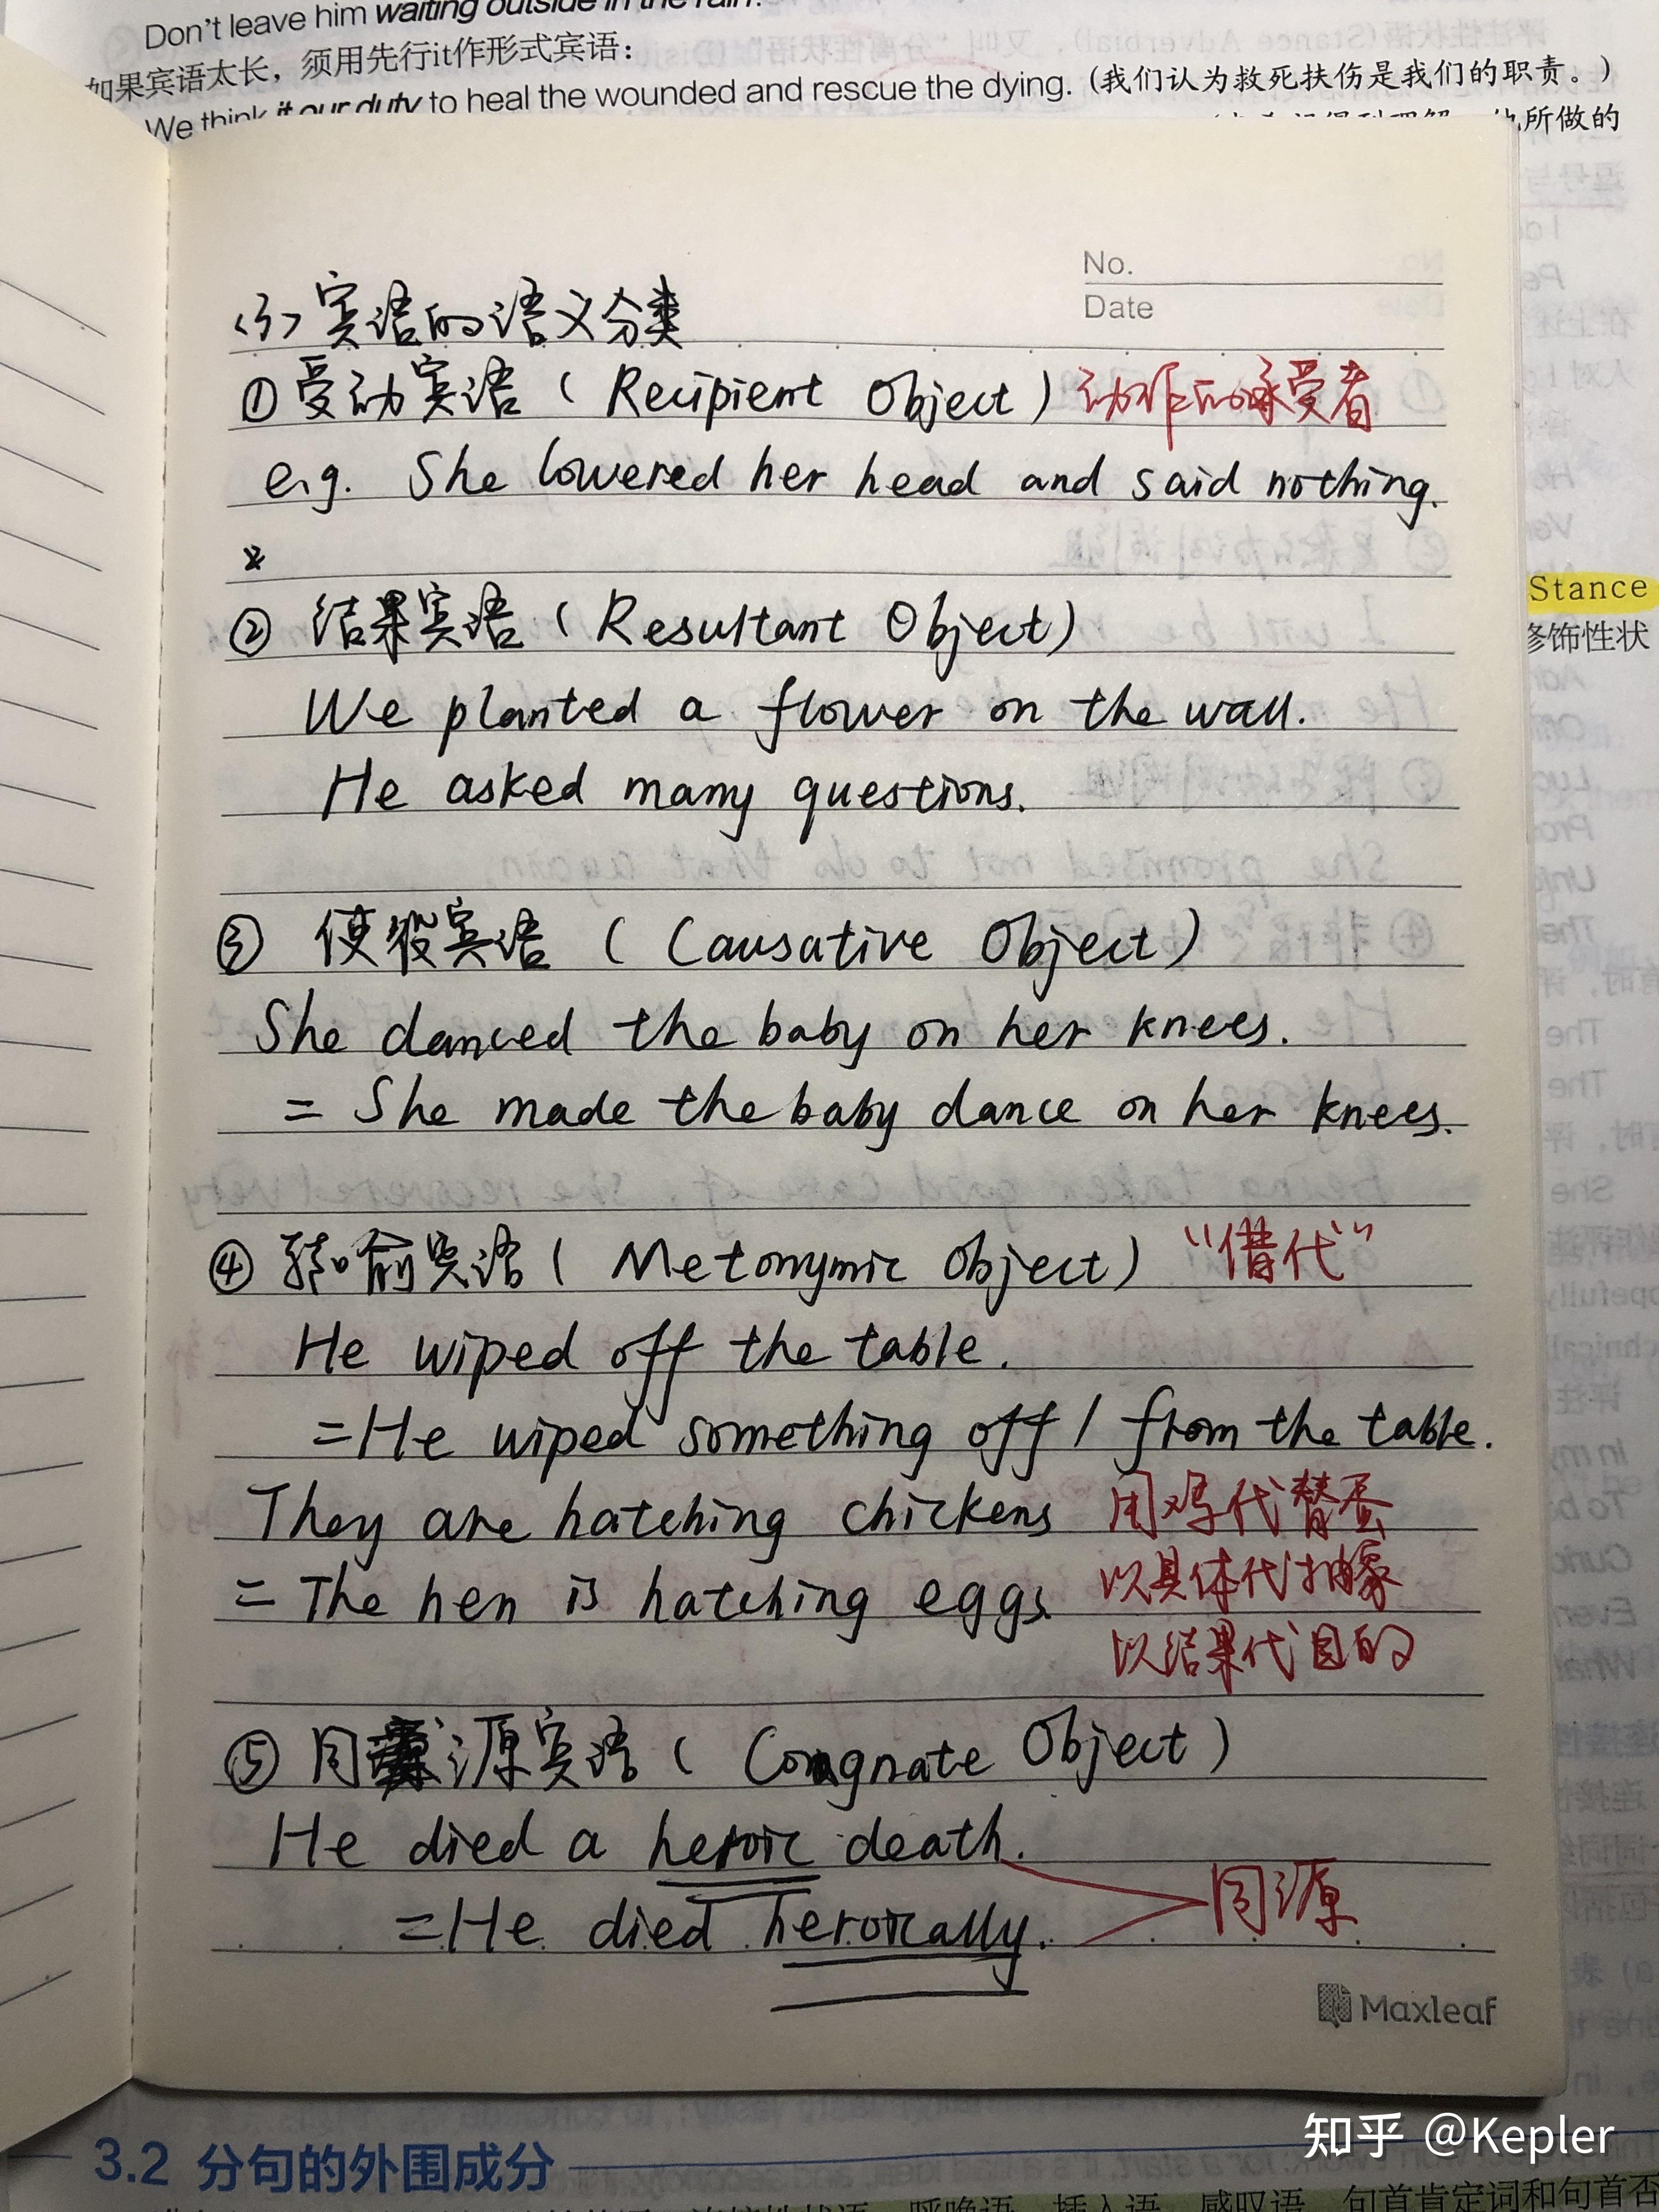 Don't leave him waiting outside in the rain.
如果宾语太长，须用先行it作形式宾语：
We think it our duty to heal the wounded and rescue the dying. (我们认为救死扶伤是我们的职责。)
所做的
No.
Date
<3> 宾语的语义分类
① 受动宾语 ( Recipient Object ) 动作的承受者
e.g. She lowered her head and said nothing.
② 结果宾语 ( Resultant Object )
We planted a flower on the wall.
He asked many questions.
③ 使役宾语 ( Causative Object )
She danced the baby on her knees.
= She made the baby dance on her knees.
④ 转喻宾语 ( Metonymic Object ) "借代"
He wiped off the table.
= He wiped something off / from the table.
They are hatching chickens 用鸡代替蛋
= The hen is hatching eggs. 以具体代抽象
以结果代目的
⑤ 同源宾语 ( Congnate Object )
He died a heroic death.
= He died heroically. 同源
Maxleaf
Stance
修饰性状
3.2 分句的外围成分
呼唤语、插入语、感叹语、句首肯定词和句首否
知乎 @Kepler